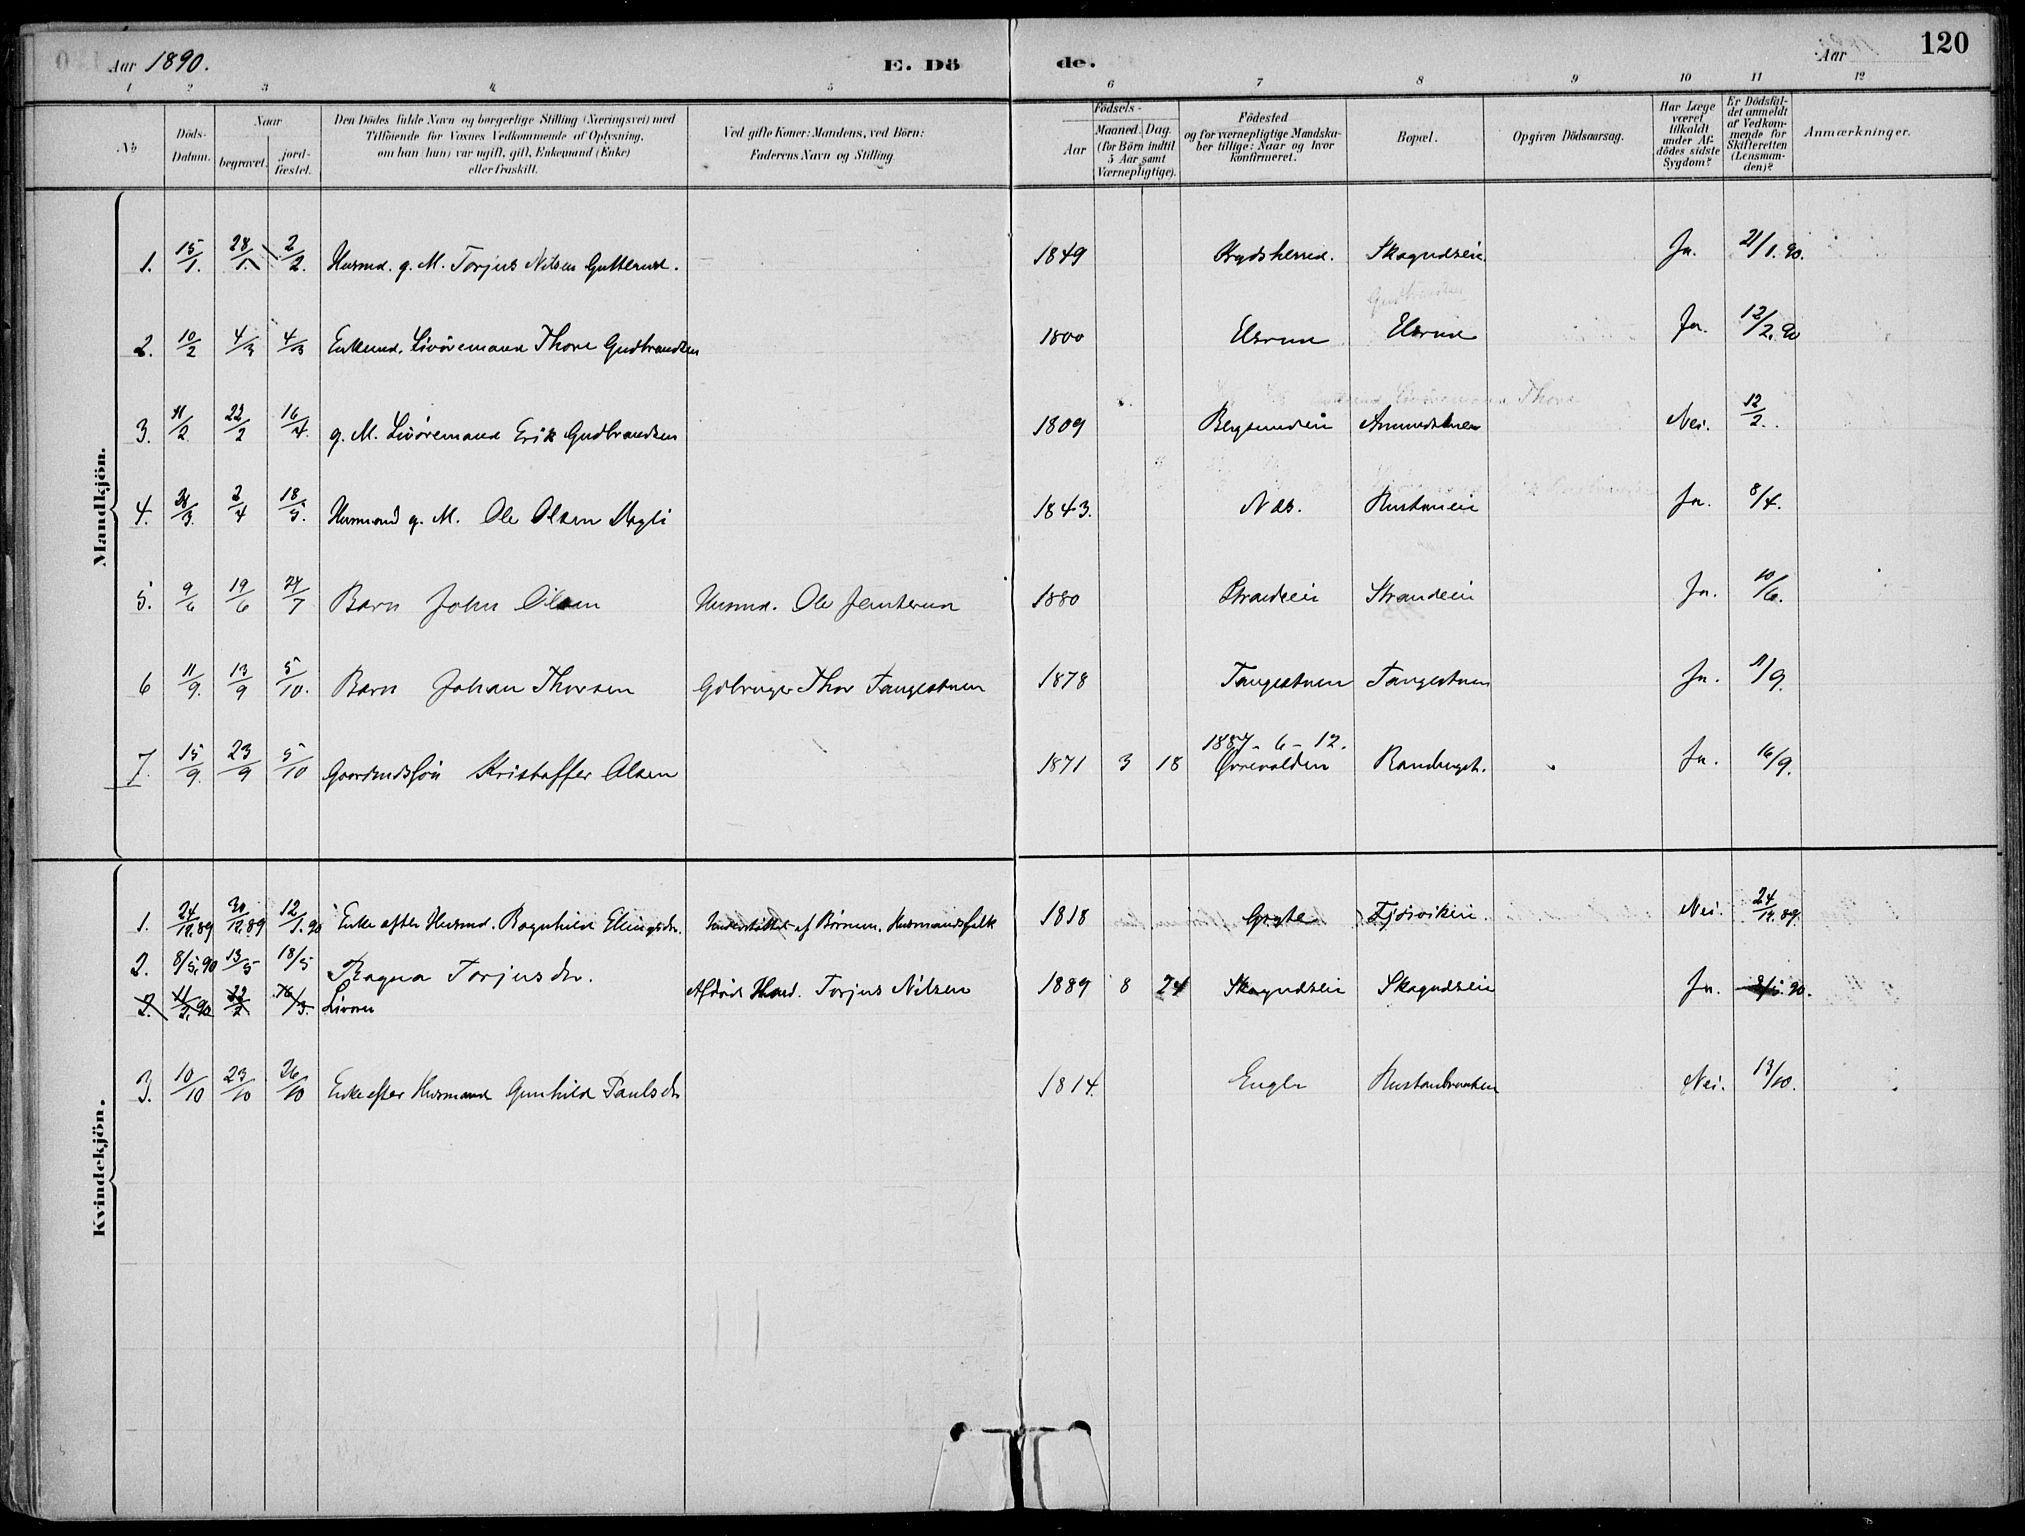 Aar 1890.
E. Dö
de.
Aar
120
1 2 3 4 5 6 7 8 9 10 11 12
No
Döds-Datum.
Naar
begravet.
jord-fæstet.
Den Dödes fulde Navn og borgerlige Stilling (Næringsvei) med
Tilföiende for Voxnes Vedkommende af Oplysning,
om han (hun) var ugift, gift, Enkemand (Enke)
eller fraskilt.
Ved gifte Koner: Mandens, ved Börn:
Faderens Navn og Stilling.
Födsels-
Aar
Maaned. Dag.
(for Börn indtil
5 Aar samt
Værnepligtige).
Födested
og for værnepligtige Mandska-
ber tillige: Naar og hvor
konfirmeret.
Bopæl.
Opgiven Dödsaarsag.
Har Læge
været
tilkaldt
under Af-
dödes sidste
Sygdom?
Er Dödsfal-
det anmeldt
af Vedkom-
mende for
Skifteretten
(Lensman-
den)?
Anmærkninger.
Mandkjön.
1. 15/1. 28/1. 2/2. Husmd. g. M. Torjus Nilsen Gulterud. 1849 Krydsherred. Skagndseie. Ja. 21/1. 90.
2. 10/2 4/3 4/3 Enkemd. Livöremand Thore Gudbrandsen 1800 Elsrud Elsrud Ja. 12/2. 90
3. 11/2 22/2 16/4. g. M. Livöremand Erik Gudbrandsen 1809 Bergsundeie Nei. 12/2.
4. 28/3 2/4 18/5. Husmand g. M. Ole Olsen 1843. Næs. Rustaneie Ja. 8/4.
5. 9/6 19/6 27/7 Barn John Olsen Husmd. Ole 1880 Strandeie Strandeie Ja. 10/6.
6 11/9. 13/9 5/10. Barn Johan Thorsen Gdbruger Thor Tangestuen 1878 Tangestuen Tangestuen Ja. 11/9.
1887 - 6 - 12.
7. 15/9. 23/9 5/10 Gaardmdssön Kristoffer Olsen 1871 3 18 Ja. 16/9.
Kvindekjön.
1. 24/12.89 30/12.89 12/1.90 Enke efter Husmd. Ragnhild Elingsdr. Understöttet af Börnene. Husmandsfolk 1818 Gryte Nei. 24/12.89.
2. 8/5.90 13/5 18/5 Ragna Torjusdr. Afdöd Husmd. Torjus Nilsen 1889 8 24 Skagndseie Skagndseie Ja. 8/5.90.
2. 11/2.90 22/2 16/3. Livöre
3. 10/10 23/10 26/10 Enke efter Husmand Gunhild Paulsdr 1814. Engle Rustanbraaten Nei. 13/10.